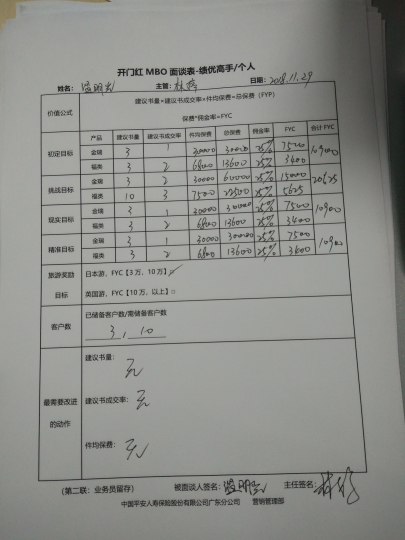 开门红 MBO 面谈表-绩优高手/个人
姓名： 主管： 日期：2018.11.29
价值公式 建议书量*建议书成交率*件均保费=总保费（FYP）
保费*佣金率=FYC
产品 建议书量 建议书成交率 件均保费 总保费 佣金率 FYC 合计 FYC
初定目标 金瑞 3 1 30000 25% 7500 10900
福类 3 2 6800 13600 25% 3400
挑战目标 金瑞 3 2 30000 60000 25% 15000 20625
福类 10 3 7500 22500 25% 5625
现实目标 金瑞 3 1 30000 30000 25% 7500 10900
福类 3 2 6800 13600 25% 3400
精准目标 金瑞 3 1 30000 30000 25% 7500
福类 3 2 6800 13600 25%
旅游奖励 日本游，FYC【3 万，10 万】
目标 英国游，FYC【10 万，以上】□
客户数 已储备客户数/需储备客户数
3，10
建议书量：
无
最需要改进 建议书成交率：无
的动作
件均保费：无
（第二联：业务员留存） 被面谈人签名： 主任签名：
中国平安人寿保险股份有限公司广东分公司 营销管理部